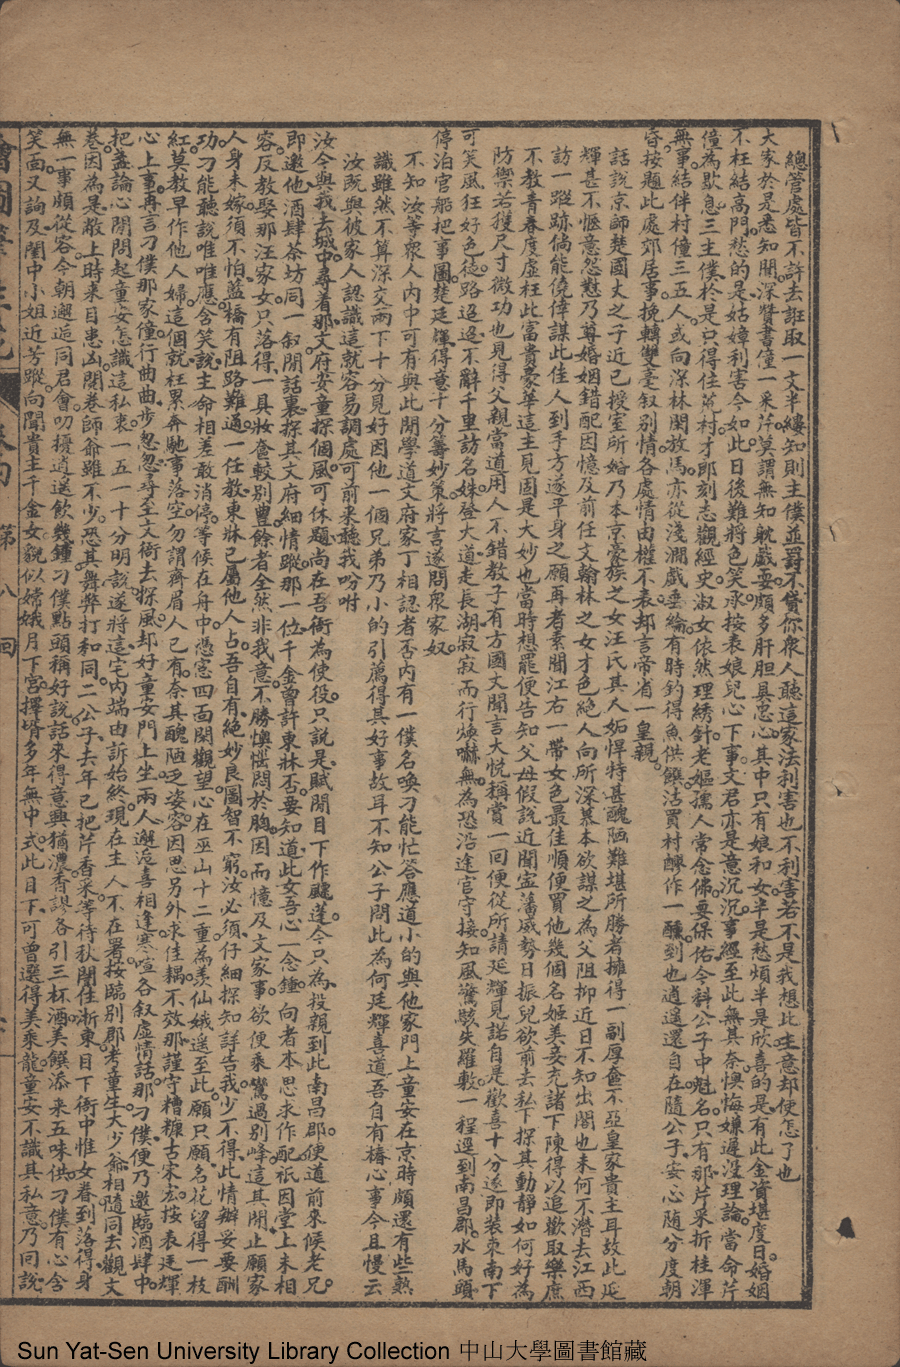 總管處皆不許去誑取一文半縷知則主僕並罰不貸你衆人聽這家法利害也不利害若不是我想此生意却便怎了也
大家於是悉知聞深賢書僮一采芹莫謂無知躭戲妄頗多肝胆具忠心其中只有娘和女半是愁煩半是欣喜的是有此金資堪度日婚姻
不枉結高門愁的是姑嫜利害今如此日後難將色笑承按表娘兒心下事文君亦是意沉沉事經至此無其奈懊悔嫌遲沒理論當命芹
僮為歇息三主僕於是只得住荒村才郎刻志觀經史淑女依然理綉針老嫗孺人常念佛要保佑今科公子中魁名只有那芹采折桂渾
無事結伴村僮三五人或向深林閑放馬亦從淺澗戲垂綸有時釣得魚供饌沽買村醪作一醺到也逍遙還自在隨公子安心随分度朝
昏按題此處郊居事挽轉雙毫叙别情各處情由權不表却言帝省一皇親
話說京師楚國丈之子近已授室所婚乃本京豪族之女汪氏其人妬悍特甚醜陋難堪所勝者擁得一副厚奩不亞皇家貴主耳故此廷
輝甚不愜意忽憖乃尊婚姻錯配因憶及前任文翰林之女才色絕人向所深慕本欲謀之為父阻抑近日不知出閣也未何不潛去江西
訪一蹤跡倘能僥倖謀此佳人到手方遂平身之願再者素聞江右一帶女色最佳順便買他幾個名姬美妾充諸下陳得以追歡取樂庶
不教青春度虛枉此富貴豪華這主見固是大妙也當時想罷便告知父母假說近聞寍藩威勢日振兒欲前去私下探其動靜如何好為
防禦若獲尺寸微功也見得父親當道用人不錯教子有方國丈聞言大悅稱賞一回便從所請廷輝見諾自是歡喜十分遂即裝束南下
可笑風狂好色徒路迢迢不辭千里訪名姝登大道走長湖寂寂而行煉嚇無為恐沿途官守接知風驚駭失羅敷一程逕到南昌郡水馬頭
停泊官船把事圖楚廷輝得意十分籌妙策將言遂問衆家奴
不知汝等衆人內中可有與此開學道文府家丁相認者否內有一僕名喚刁能忙答應道小的與他家門上童安在京時頗還有些熟
識雖然不算深交兩下十分見好因他一個兄弟乃小的引薦得其好事故耳不知公子問此為何廷輝喜道吾自有椿心事今且慢云
汝既與彼家人認識這就容易調處可前來聽我吩咐
汝今與我去城中尋着那文府安童探個風可休題尚在吾衙為使役只說是賦閒目下作飃蓬今只為投親到此南昌郡便道前來候老兄
即邀他酒肆茶坊同一叙閒話裏探其文府細情蹤那一位千金曾許東牀否要知道此女吾心一念鍾向者本思求作配祇因堂上未相
容反教娶那汪家女只落得一具妝奩較别豊餘者全然非我意不勝懊惱悶於胸因而憶及文家事欲便乘鸞過别峰這其間止願家
人身未嫁須不怕藍橋有阻路難通一任教東牀已屬他人占吾自有絕妙良圖智不窮汝必須仔細探知詳告我少不得此情辦妥要酬
功刁能聽說唯唯應含笑說主命相差敢消停等候在舟中憑窓四面閑觀望心在巫山十二重為羨仙娥遥至此願只願名花留得一枝
紅莫教早作他人婦這個就枉累奔馳事落空勿謂齊眉人已有奈其醜陋乏姿容因思另外求佳耦不效那謹守糟糠古宋宏按表廷輝
心上事再言刁僕那家僮行曲曲步怱怱尋至文衙去探風却好童安門上坐兩人邂逅喜相逢寒喧各叙虛情話那刁僕便乃邀臨酒肆中
把盞論心閒問起童安怎識這私衷一五一十分明說遂將這宅內端由訴始終現在主人不在署按臨别郡考童生大少爺相隨同去觀文
卷因為是散上時來目患凶閱卷師爺雖不少恐其舞弊打和同二公子去年已把芹香采等待秋闈住浙東目下衙中惟女眷到落得身
無一事頗從容今朝邂逅同君會叨擾逍遥飲幾鍾刁僕點頭稱好說話來得意興猶濃香謬各引三杯酒美饌添來五味供刁僕有心含
笑面又詢及閨中小姐近芳蹤向聞貴主千金女貌似嫦娥月下宮擇壻多年無中式此目下可曾選得美乘龍童安不識其私意乃回說
繪圖筆生花 卷四 第八回
Sun Yat-Sen University Library Collection 中山大學圖書館藏